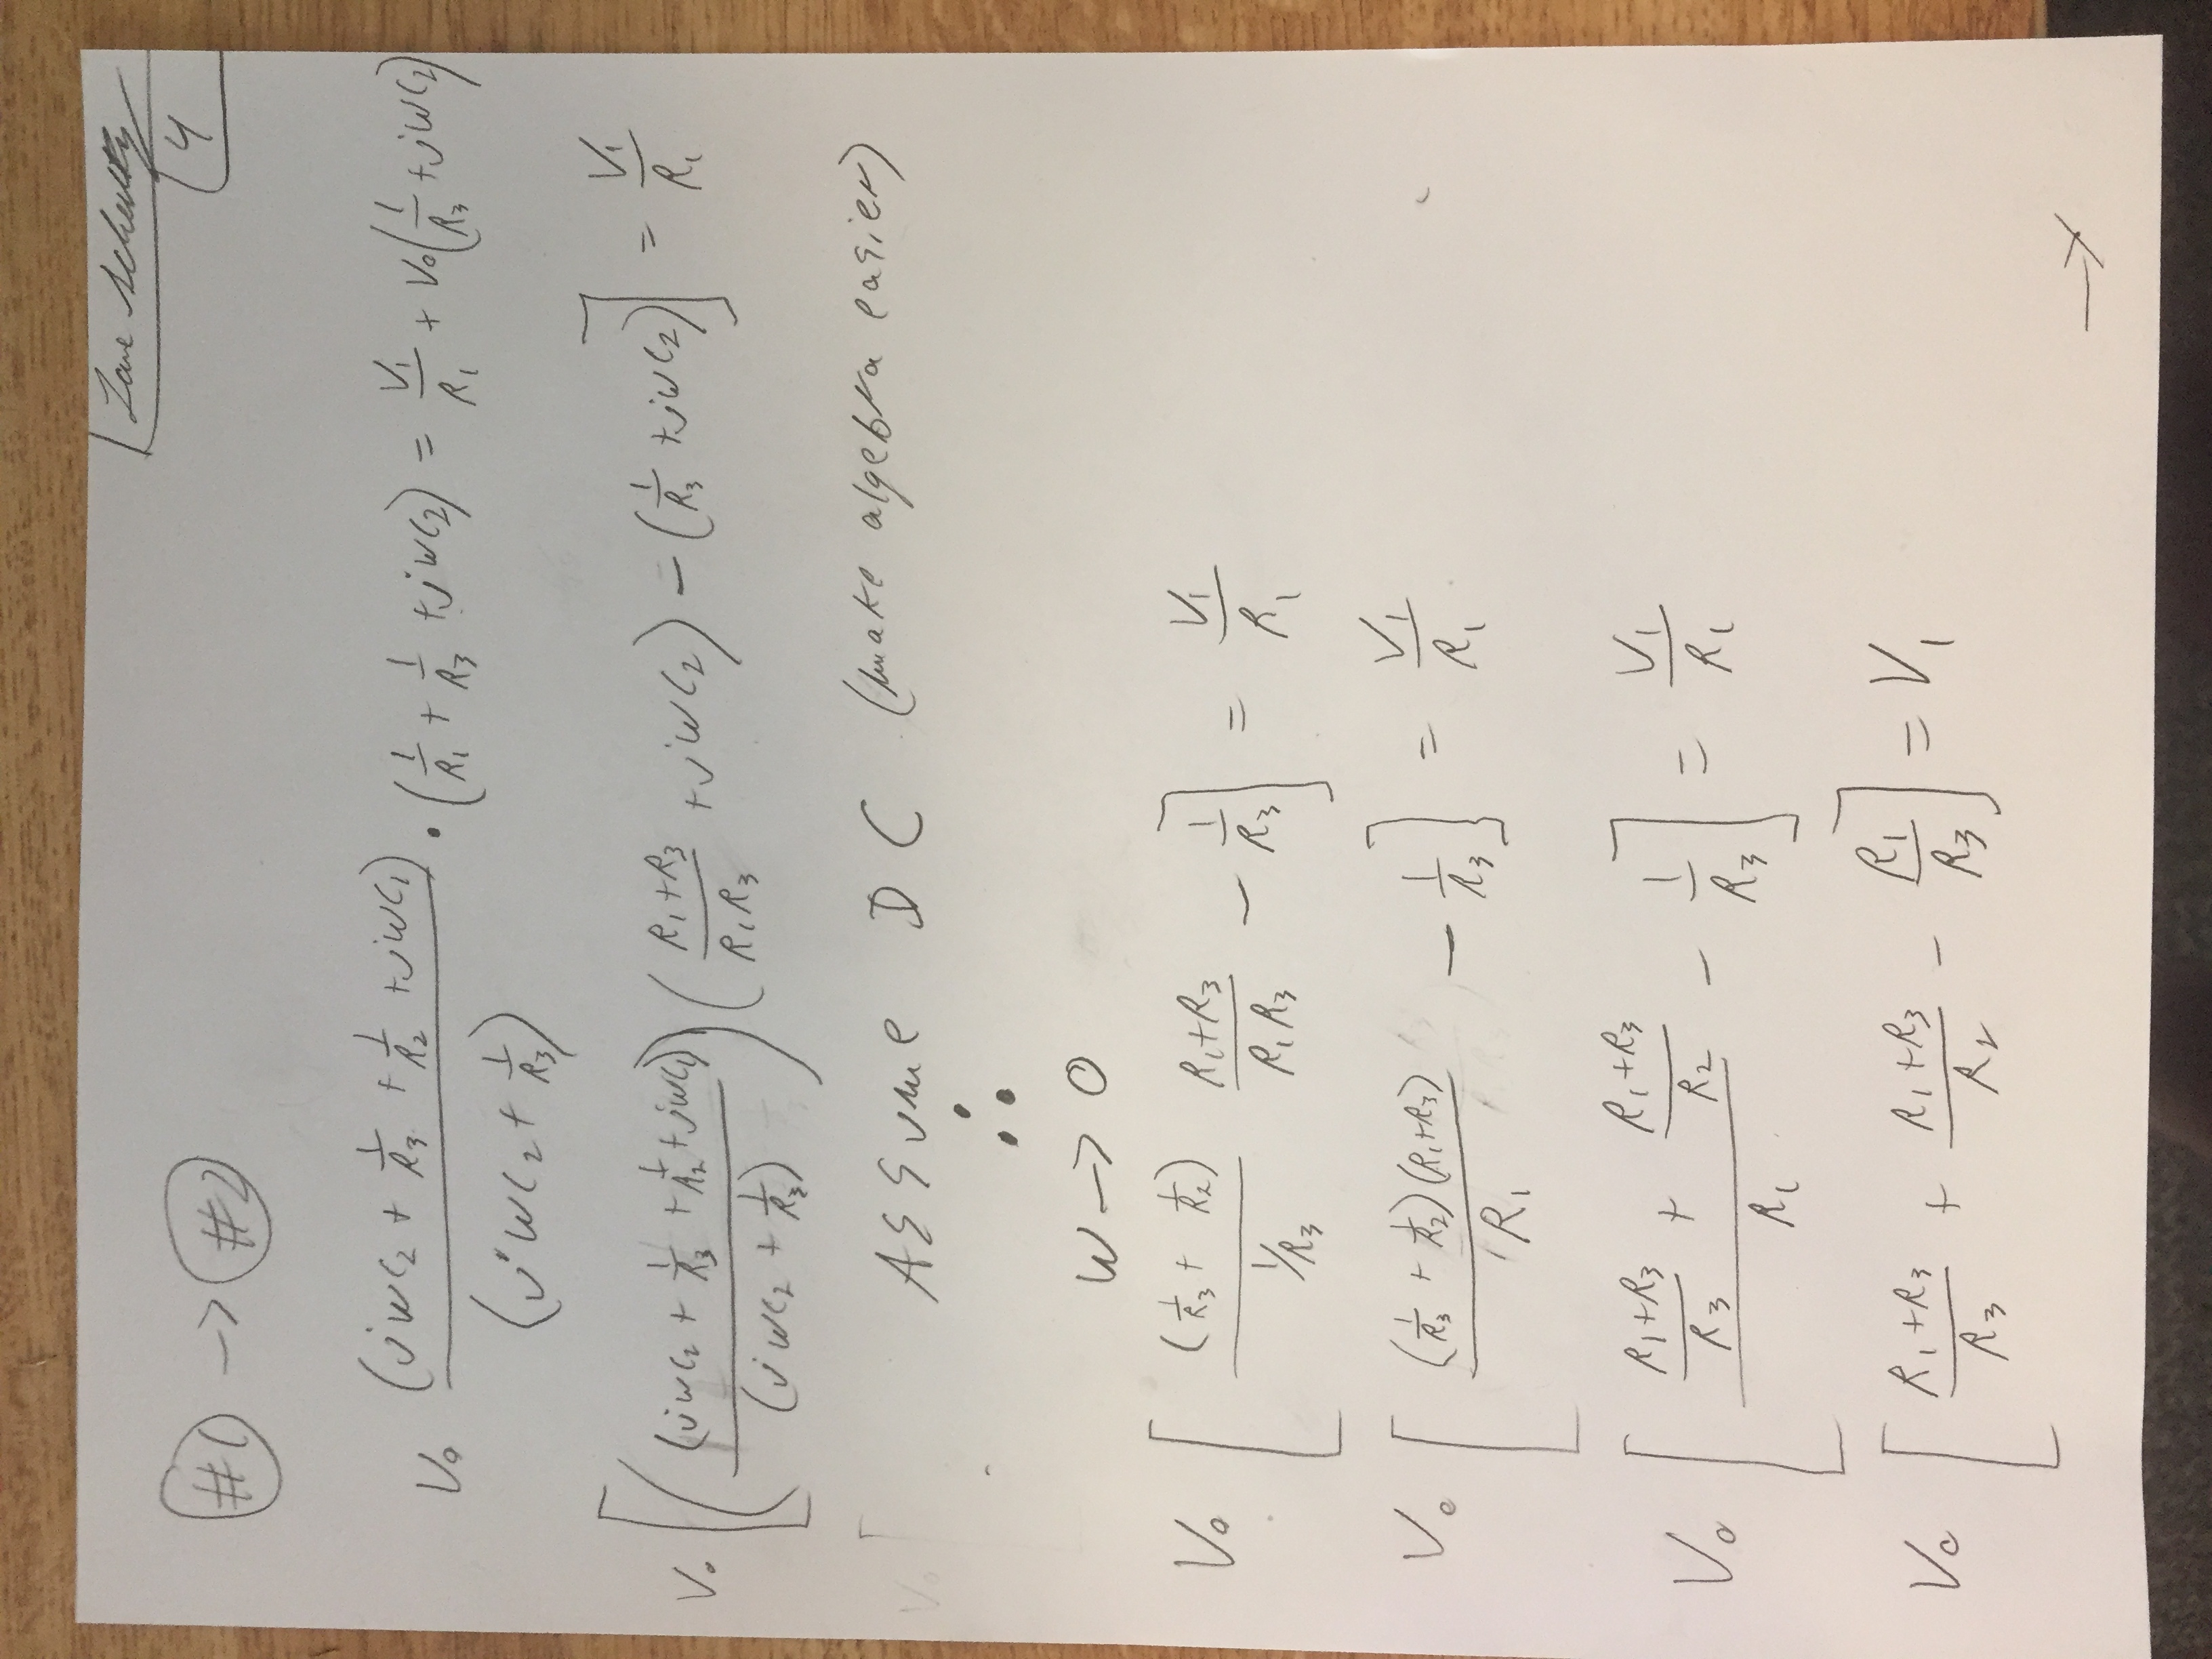 4
#1 -> #2
V₀ (jwc₂ + 1/R₃ + 1/R₂ + jwc₁) / (jwc₂ + 1/R₃) • (1/R₁ + 1/R₃ + jwc₂) = V₁/R₁ + V₀(1/R₃ + jwc₂)
V₀ [((jwc₂ + 1/R₃ + 1/R₂ + jwc₁) / (jwc₂ + 1/R₃)) ((R₁+R₃)/(R₁R₃) + jwc₂) - (1/R₃ + jwc₂)] = V₁/R₁
V₀ [
Assume DC (make algebra easier)
∴
w -> 0
V₀ [(1/R₃ + 1/R₂)/(1/R₃) (R₁+R₃)/(R₁R₃) - 1/R₃] = V₁/R₁
V₀ [(1/R₃ + 1/R₂)(R₁+R₃)/R₁ - 1/R₃] = V₁/R₁
V₀ [((R₁+R₃)/R₃ + (R₁+R₃)/R₂)/R₁ - 1/R₃] = V₁/R₁
V₀ [(R₁+R₃)/R₃ + (R₁+R₃)/R₂ - R₁/R₃] = V₁
->